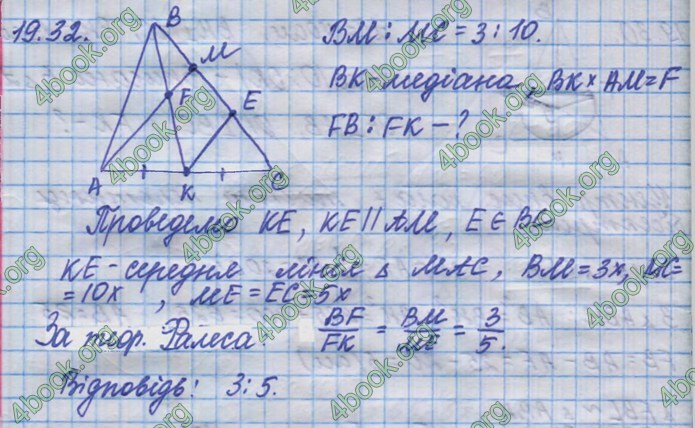 19.32.
B
M
F
E
A
K
C
BM : MC = 3 : 10.
BK - медіана, BK × AM = F
FB : FK - ?
Проведемо KE, KE || AM, E ∈ BC
KE - середня лінія Δ MAC, BM = 3x, MC =
= 10x, ME = EC = 5x
За теор. Фалеса: BF/FK = BM/ME = 3/5.
Відповідь: 3 : 5.
4book.org